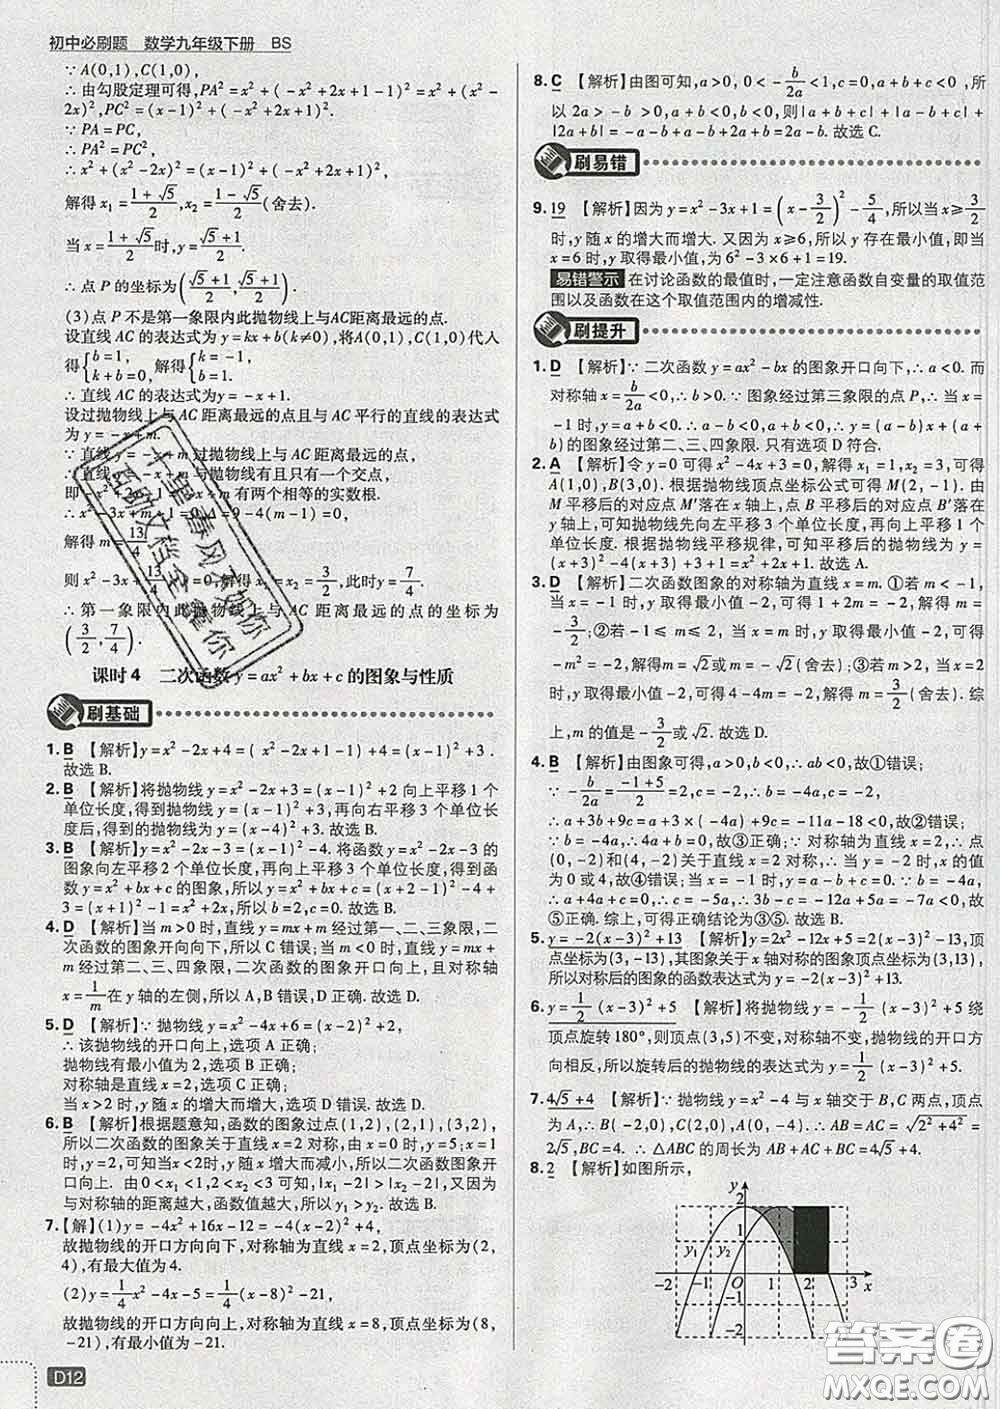 初中必刷题 数学九年级下册 BS
∵A(0,1),C(1,0),
∴由勾股定理可得,PA²=x²+(-x²+2x+1-1)²=x²+(-x²+
2x)²,PC²=(x-1)²+(-x²+2x+1)².
∵PA=PC,
∴PA²=PC²,
∴x²+(-x²+2x)²=(x-1)²+(-x²+2x+1)²,
解得x₁=(1+√5)/2,x₂=(1-√5)/2(舍去).
当x=(1+√5)/2时,y=(√5+1)/2.
∴点P的坐标为((√5+1)/2,(√5+1)/2).
(3)点P不是第一象限内此抛物线上与AC距离最远的点.
设直线AC的表达式为y=kx+b(k≠0),将A(0,1),C(1,0)代入
得{b=1, k+b=0, 解得{k=-1, b=1.
∴直线AC的表达式为y=-x+1.
设过抛物线上与AC距离最远的点且与AC平行的直线的表达式
为y=-x+m.
∵直线y=-x+m过抛物线上与AC距离最远的点,
∴直线y=-x+m与抛物线有且只有一个交点,
即-x²+2x+1=-x+m有两个相等的实数根.
∴x²-3x+m-1=0,Δ=9-4(m-1)=0,
解得m=13/4.
则x²-3x+13/4-1=0,解得x₁=x₂=3/2,此时y=7/4.
∴第一象限内此抛物线上与AC距离最远的点的坐标为
(3/2,7/4).
课时4 二次函数y=ax²+bx+c的图象与性质
刷基础
1.B 【解析】y=x²-2x+4=(x²-2x+1-1)+4=(x-1)²+3.
故选B.
2.B 【解析】将抛物线y=x²-2x+3=(x-1)²+2向上平移1个
单位长度,得到抛物线y=(x-1)²+3,再向右平移3个单位长
度后,得到的抛物线为y=(x-4)²+3.故选B.
3.B 【解析】y=x²-2x-3=(x-1)²-4.将函数y=x²-2x-3的
图象向左平移2个单位长度,再向上平移3个单位长度,得到函
数y=x²+bx+c的图象,所以y=x²+bx+c=(x+2-1)²-4+
3=(x+1)²-1=x²+2x,所以b=2,c=0.故选B.
4.D 【解析】当m>0时,直线y=mx+m经过第一、二、三象限,
二次函数的图象开向向下,所以C错误;当m<0时,直线y=mx
+m经过第二、三、四象限,二次函数的图象开口向上,对称轴
x=1/m在y轴的左侧,所以A,B错误,D正确.故选D.
5.D 【解析】∵抛物线y=x²-4x+6=(x-2)²+2,
∴该抛物线的开口向上,选项A正确;
抛物线有最小值为2,选项B正确;
对称轴是直线x=2,选项C正确;
当x>2时,y随x的增大而增大,选项D错误.故选D.
6.B 【解析】根据题意知,函数的图象过点(1,2),(2,1),(3,2),
所以二次函数的图象关于直线x=2对称,由x=0时,y=5;x=1
时,y=2,所以在对称轴左侧y随x的增大而减小,所以图象开口
向上.由0<x₁<1,2<x₂<3,易知|x₁-2|>|x₂-2|,又因为
与对称轴的距离越大,函数值越大,所以y₁>y₂.故选B.
7.【解】(1)y=-4x²+16x-12=-4(x-2)²+4,
故抛物线的开口方向向下,对称轴为直线x=2,顶点坐标为(2,
4),有最大值为4.
(2)y=1/4x²-4x-5=1/4(x-8)²-21,
故抛物线的开口方向向上,对称轴为直线x=8,顶点坐标为(8,
-21),有最小值为-21.
D12
8.C 【解析】由图可知,a>0,0<-b/2a<1,c=0,a+b+c<0,所
以2a>-b>0,a+b<0,b<0,则|a+b+c|+|a-b+c|+
|2a+b|=-a-b+a-b+2a+b=2a-b.故选C.
刷易错
9.19 【解析】因为y=x²-3x+1=(x-3/2)²-5/4,所以当x≥3/2
时,y随x的增大而增大.又因为x≥6,所以y存在最小值,即当
x=6时,y取得最小值,为6²-3×6+1=19.
易错警示 在讨论函数的最值时,一定注意函数自变量的取值范
围以及函数在这个取值范围内的增减性.
刷提升
1.D 【解析】∵二次函数y=ax²-bx的图象开口向下,∴a<0.而
对称轴x=b/2a<0,∴b>0.∵图象经过第三象限的点,∴当x=
-1时,y=a+b<0.∴a-b<0,a+b<0,∴y=(a-b)x+(a+
b)的图象经过第二、三、四象限.只有选项D符合.
2.A 【解析】令y=0可得x²-4x+3=0,解得x₁=1,x₂=3,可得
A(1,0),B(3,0).根据抛物线顶点坐标公式可得M(2,-1).由
M平移后的对应点M′落在x轴上,点B平移后的对应点B′落在
y轴上,可知抛物线先向左平移3个单位长度,再向上平移1个
单位长度.根据抛物线平移规律,可知平移后的抛物线为y=
(x+3)²-4(x+3)+3+1=x²+2x+1.故选A.
3.D 【解析】二次函数图象的对称轴为直线x=m.①若m<-1,
当x=-1时,y取得最小值-2,可得1+2m=-2,解得m=
-3/2;②若-1≤m≤2,当x=m时,y取得最小值-2,可得
-m²=-2,解得m=√2或m=-√2(舍去);③若m>2,当x=2
时,y取得最小值-2,可得4-4m=-2,解得m=3/2(舍去).综
上,m的值为-3/2或√2.故选D.
4.B 【解析】由图象可得,a>0,b<0,∴ab<0,故①错误;
∵-b/2a=(-1+5)/2=2,∴b=-4a.
∴a+3b+9c=a+3×(-4a)+9c=-11a-18<0,故②错误;
∵b=-4a,∴4a+b=0,故③正确;∵对称轴为直线x=2,∴点
(0,-2)和(4,-2)关于直线x=2对称,∴当y=-2时,x的值
为0或4,故④错误;∵当x=-1时,y=a-b+c=0.∵b=-4a,
∴a+4a+c=0,∴c=-5a,∴3b+c=-12a+5a=-7a<0,故
⑤正确.综上,可得正确结论为③⑤.故选B.
5.y=-2(x-3)²+13 【解析】y=2x²-12x+5=2(x-3)²-13,
顶点坐标为(3,-13),其图象关于x轴对称的图象顶点坐标为(3,13),
所以对称后的图象的函数表达式为y=-2(x-3)²+13.
6.y=1/2(x-3)²+5 【解析】将抛物线y=-1/2(x-3)²+5绕
顶点旋转180°,则顶点(3,5)不变,对称轴不变,抛物线的开口方向
相反,所以旋转后的抛物线的表达式为y=1/2(x-3)²+5.
7.4√5+4 【解析】∵抛物线y=x²-4与x轴交于B,C两点,顶点
为A,∴B(-2,0),C(2,0),A(0,-4),∴AB=AC=√(2²+4²)=
2√5,BC=4.∴△ABC的周长为AB+AC+BC=4√5+4.
8.2 【解析】如图所示,
y
2
1
y₁ y₂
-2 -1 O 1 2 3 x
-2
千里春风不如你
互助文档全靠你
答案圈
MXQE.COM